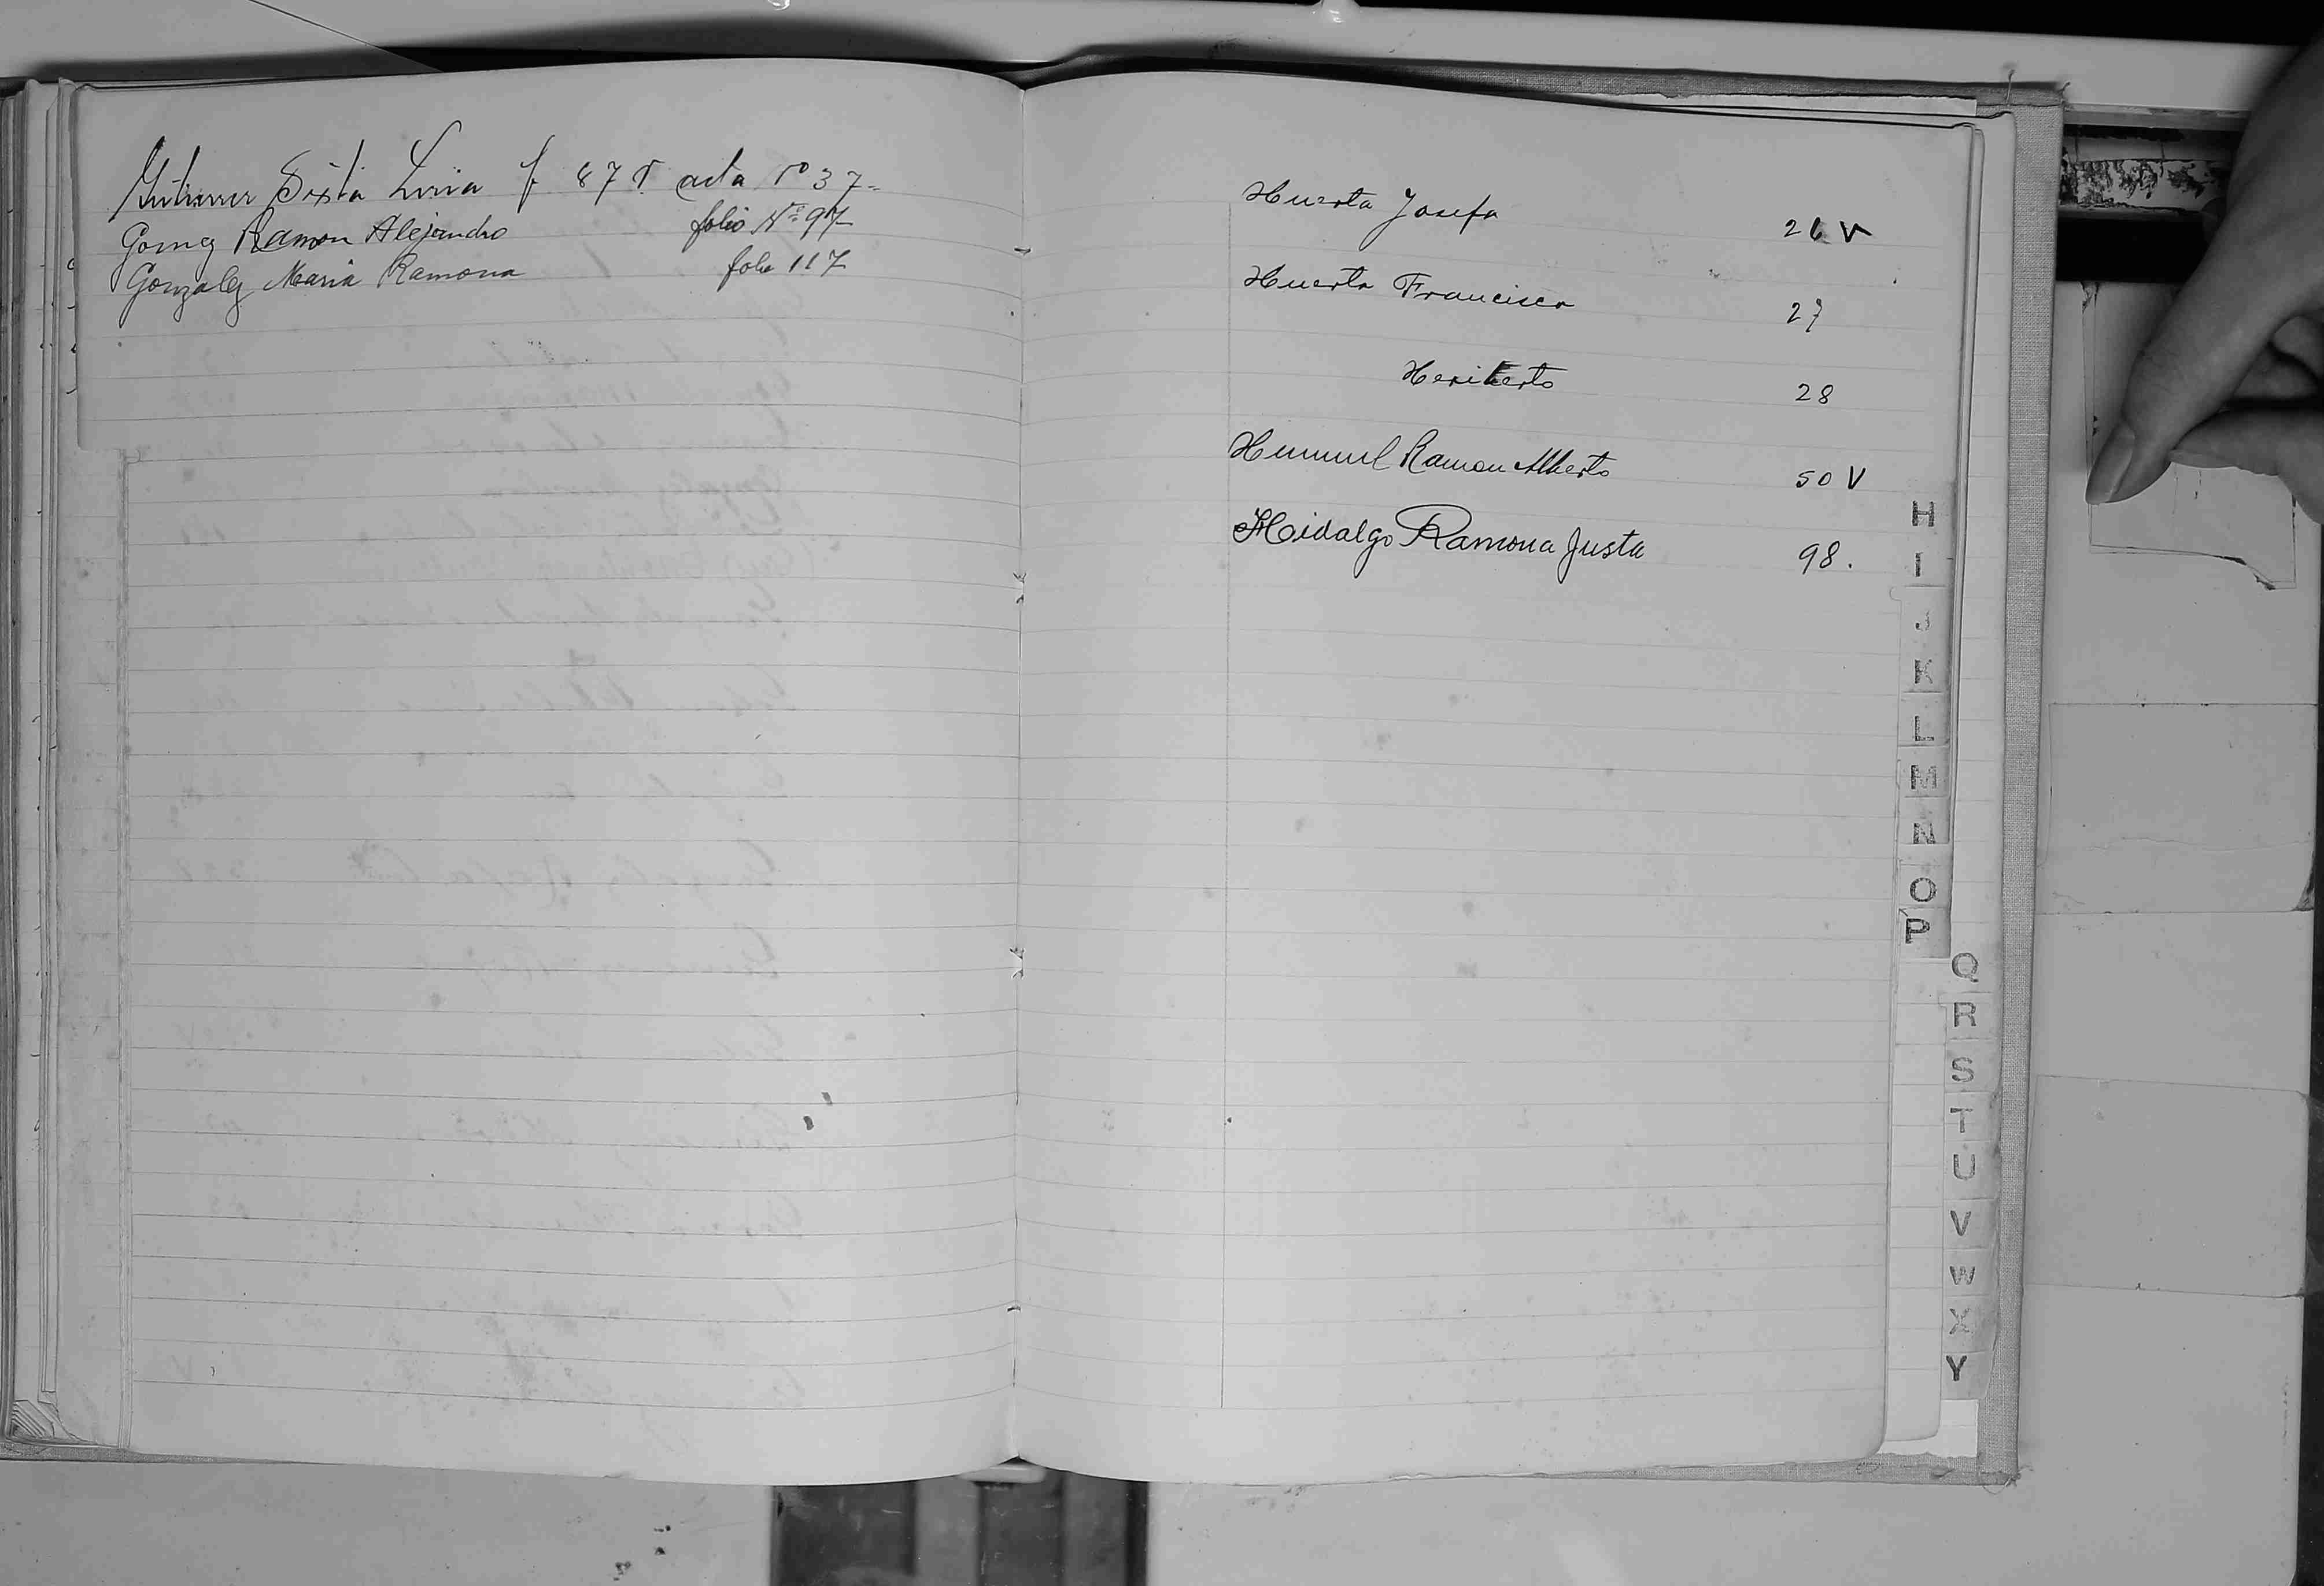 Gutierrez Sixta Livia f 87 V. acta Nº 37-
Gomez Ramon Alejandro folio Nº 97
Gonzalez Maria Ramona folio 117
Huerta Josefa 26 V
Huerta Francisca 27
Heriberto 28
Ramon Alberto 50 V
Hidalgo Ramona Justa 98.
H
I
J
K
L
M
N
O
P
Q
R
S
T
U
V
W
X
Y